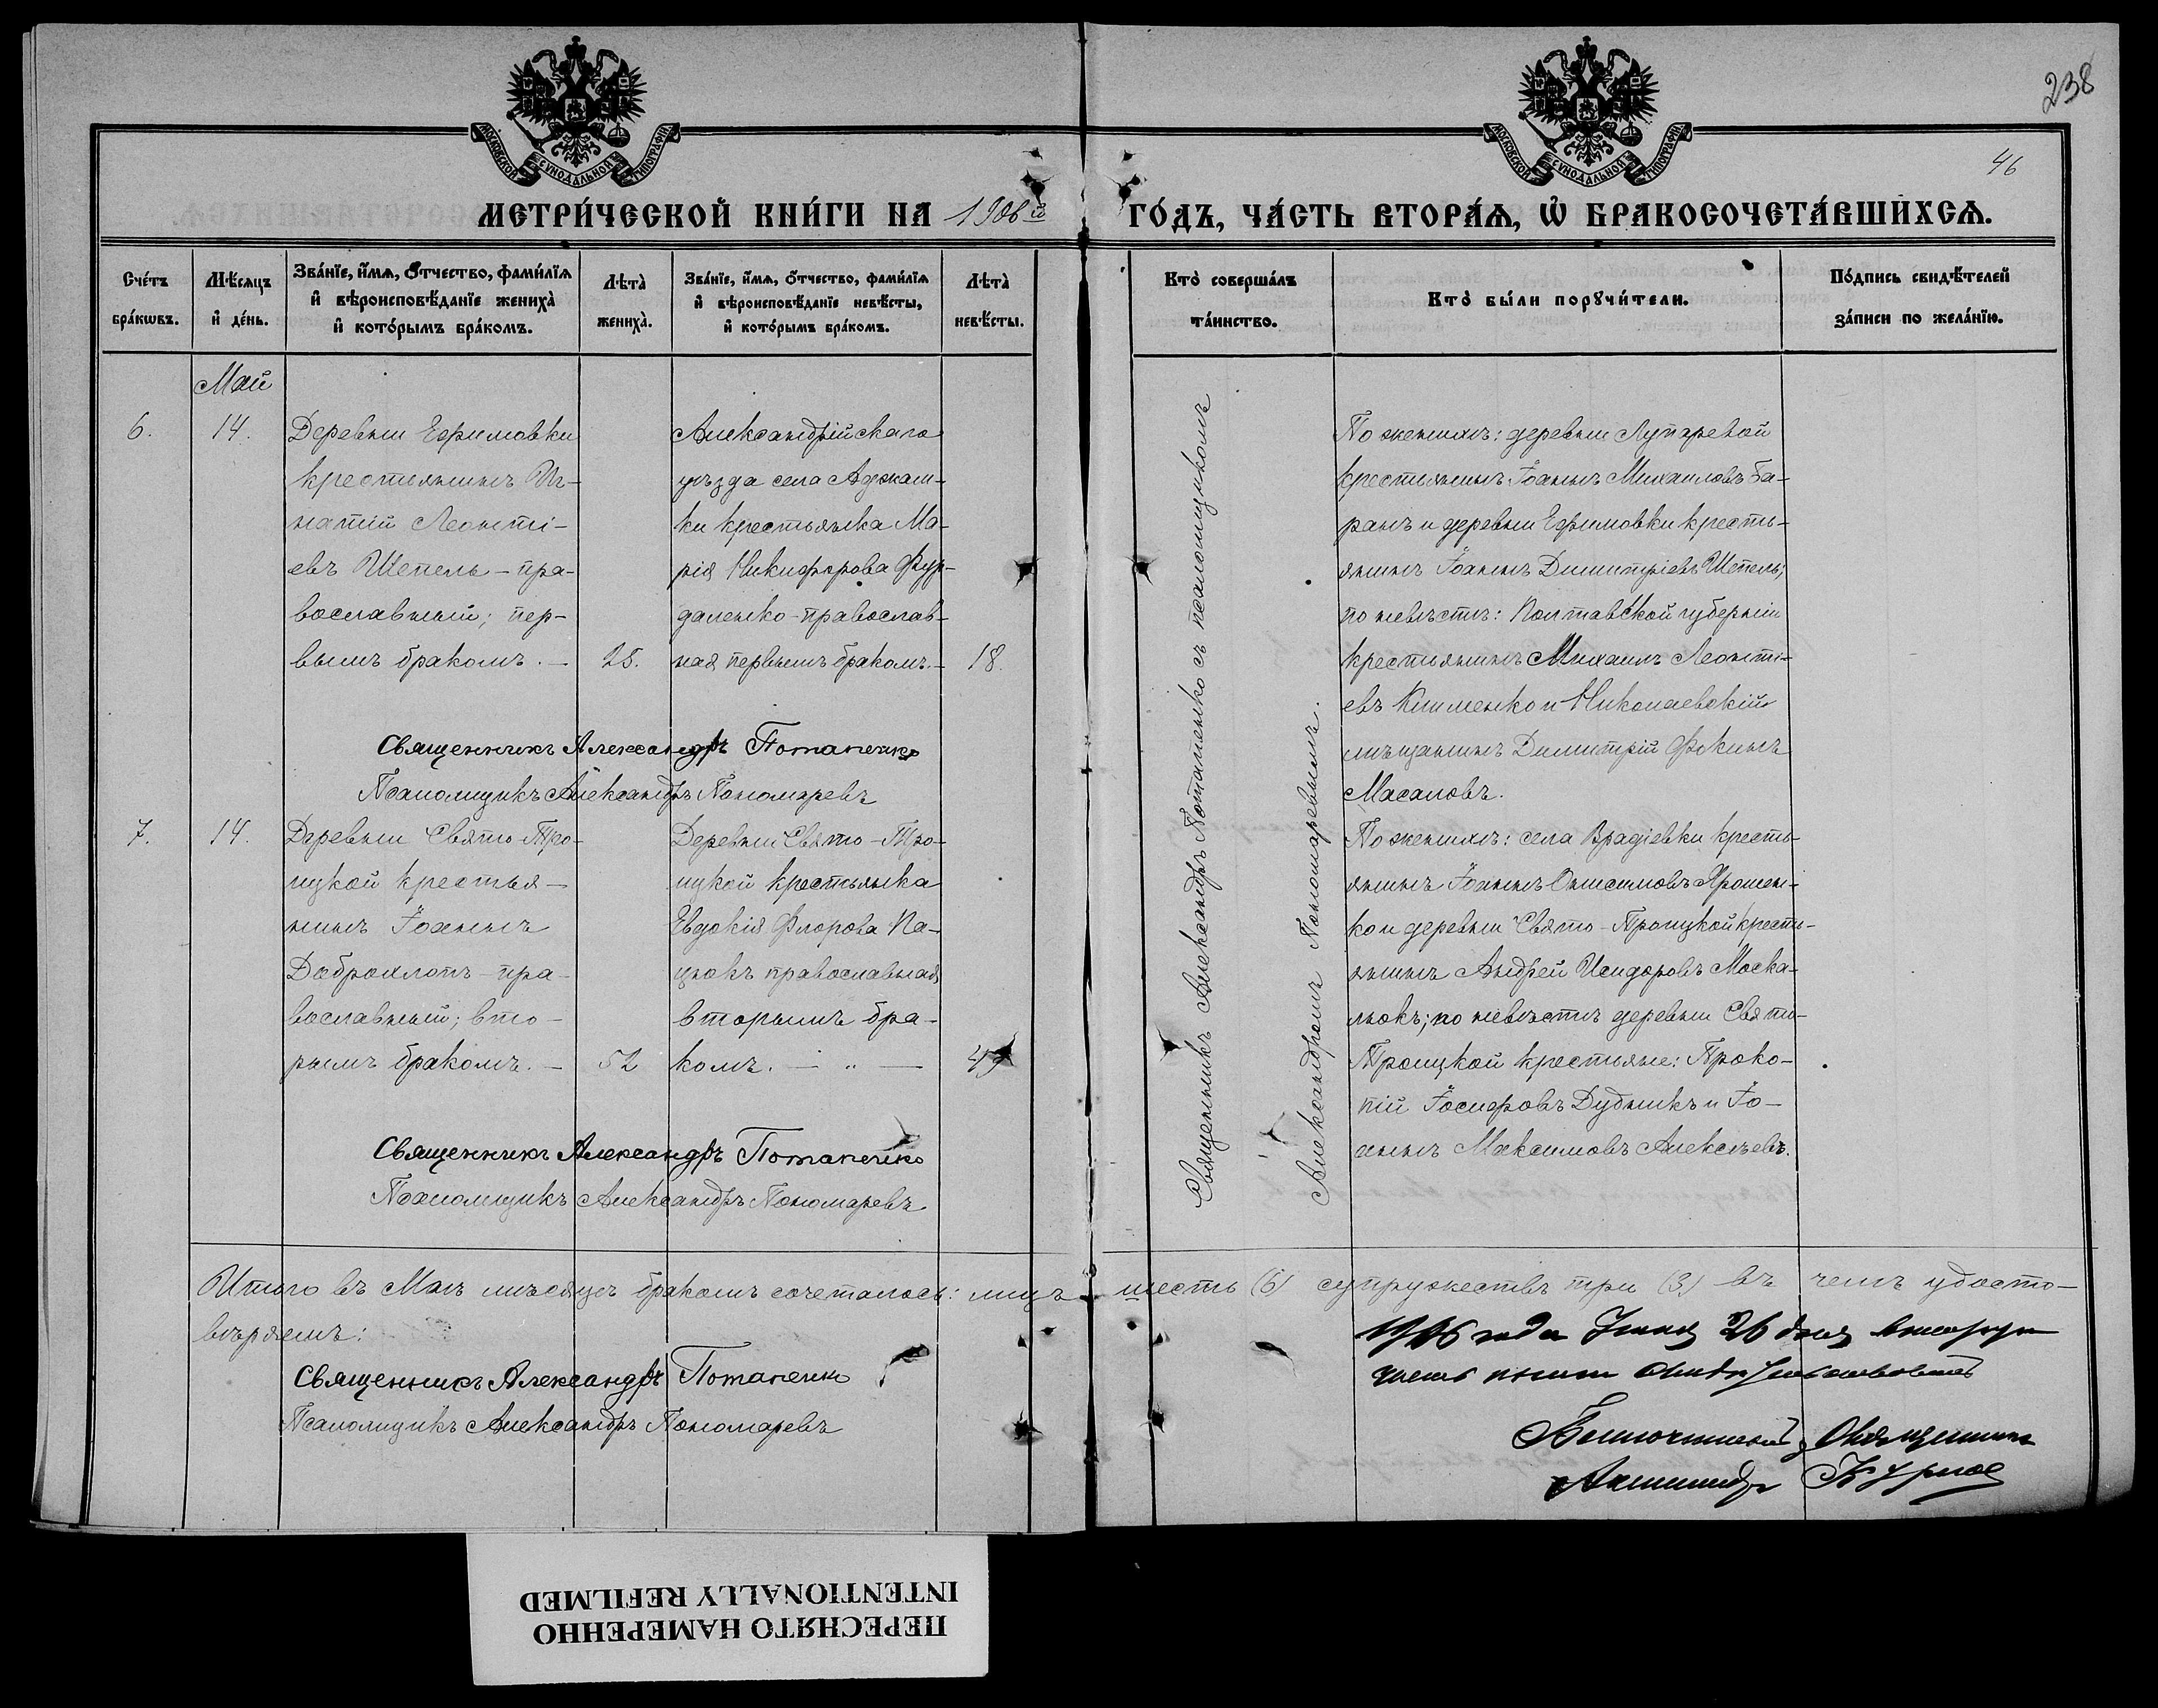 238
46
МОСКОВСКОЙ СѴНОДАЛЬНОЙ ТИПОГРАФІИ
МОСКОВСКОЙ СѴНОДАЛЬНОЙ ТИПОГРАФІИ
МЕТРИ́ЧЕСКОЙ КНИ́ГИ НА 1906й ГО́ДЪ, ЧА́СТЬ ВТОРА́Ѧ, Ѽ БРАКОСОЧЕТА́ВШИХСѦ.
Сче́тъ бра́кѡвъ.
Мѣ́сѧцъ и҆ де́нь.
Зва́нїе, и҆́мѧ, ѻ҆́тчество, фами́лїѧ и҆ вѣроисповѣ́данїе женихà и҆ кото́рымъ бра́комъ.
Лѣтà женихà.
Зва́нїе, и҆́мѧ, ѻ҆́тчество, фами́лїѧ и҆ вѣроисповѣ́данїе невѣ́сты, и҆ кото́рымъ бра́комъ.
Лѣтà невѣ́сты.
Кто̀ соверша́лъ та́инство.
Кто̀ бы́ли порꙋчи́тели.
По́дпись свидѣ́телей за́писи по жела́нїю.
Май
6.
14.
Деревни Ефимовки
крестьянинъ Иг-
натій Леонті-
евъ Шепель - пра-
вославный; пер-
вымъ бракомъ. —
25.
Александрійскаго
уѣзда села Аджам-
ки крестьянка Ма-
рія Никифорова Фур-
даленко - православ-
ная первымъ бракомъ. —
18.
Священникъ Александръ Потапенко съ псаломщикомъ
Александромъ Пономаревымъ.
По женихѣ: деревни Лупаревой
крестьянинъ Іоаннъ Михаиловъ Ба-
ранъ и деревни Ефимовки кресть-
янинъ Іоаннъ Димитріевъ Шепель;
по невѣстѣ: Полтавской губерніи
крестьянинъ Михаилъ Леонті-
евъ Клименко и Николаевскій
мѣщанинъ Димитрій Фокинъ
Масаловъ.
Священникъ Александръ Потапенко
Псаломщикъ Александръ Пономаревъ
7.
14.
Деревни Свято-Тро-
ицкой крестья-
нинъ Іоаннъ
Доброхлопъ - пра-
вославный; вто-
рымъ бракомъ. —
52
Деревни Свято-Тро-
ицкой крестьянка
Евдокія Флорова Па-
цюкъ православная
вторымъ бра-
комъ. — „ —
По женихѣ: села Врадіевки кресть-
янинъ Іоаннъ Онисимовъ Ярошен-
ко и деревни Свято-Троицкой кресть-
янинъ Андрей Исидоровъ Моска-
люкъ; по невѣстѣ деревни Свято-
Троицкой крестьяне: Проко-
пій Іосифовъ Дудникъ и Іо-
аннъ Максимовъ Алексѣевъ.
Священникъ Александръ Потапенко
Псаломщикъ Александръ Пономаревъ
Итого въ Маѣ мѣсяцѣ бракомъ сочеталось: лицъ шесть (6) супружествъ три (3) въ чемъ удосто-
вѣряемъ:
Священникъ Александръ Потапенко
Псаломщикъ Александръ Пономаревъ
1906 года Іюня 26 дня
Благочинный, Священникъ
ПЕРЕСНЯТО НАМЕРЕННО
INTENTIONALLY REFILMED